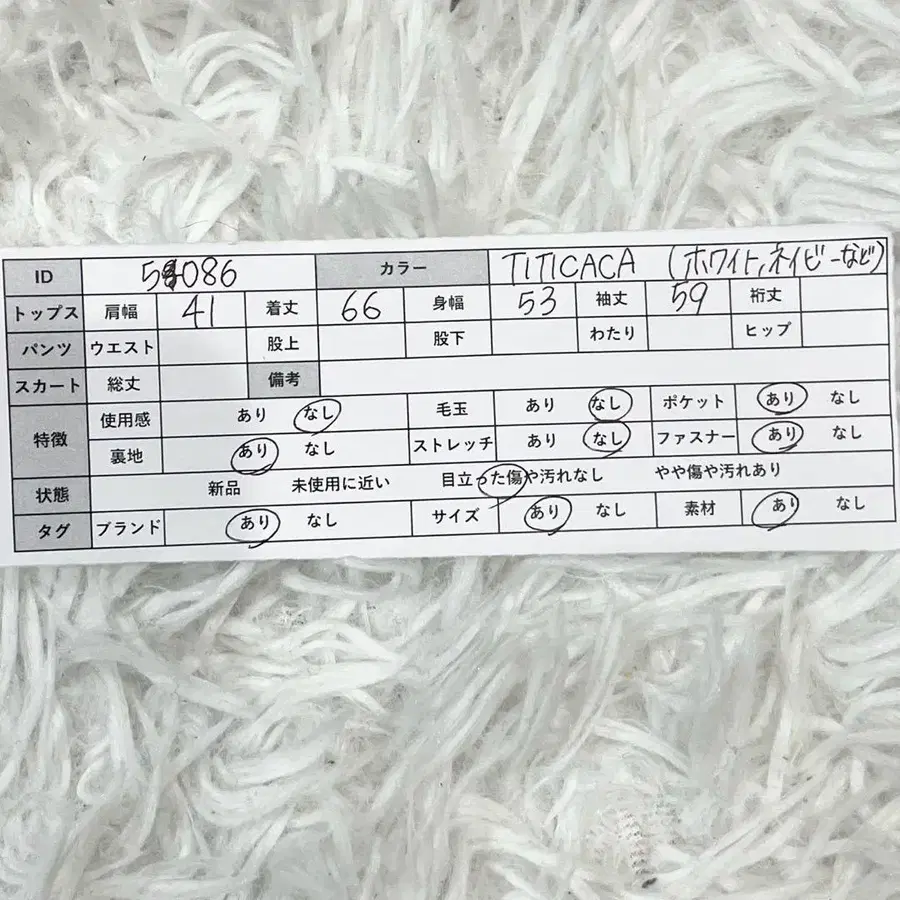 ID 5 086 カラー TITICACA (ホワイト,ネイビーなど)
トップス 肩幅 41 着丈 66 身幅 53 袖丈 59 裄丈
パンツ ウエスト 股上 股下 わたり ヒップ
スカート 総丈 備考
特徴 使用感 あり なし 毛玉 あり なし ポケット あり なし
裏地 あり なし ストレッチ あり なし ファスナー あり なし
状態 新品 未使用に近い 目立った傷や汚れなし やや傷や汚れあり
タグ ブランド あり なし サイズ あり なし 素材 あり なし